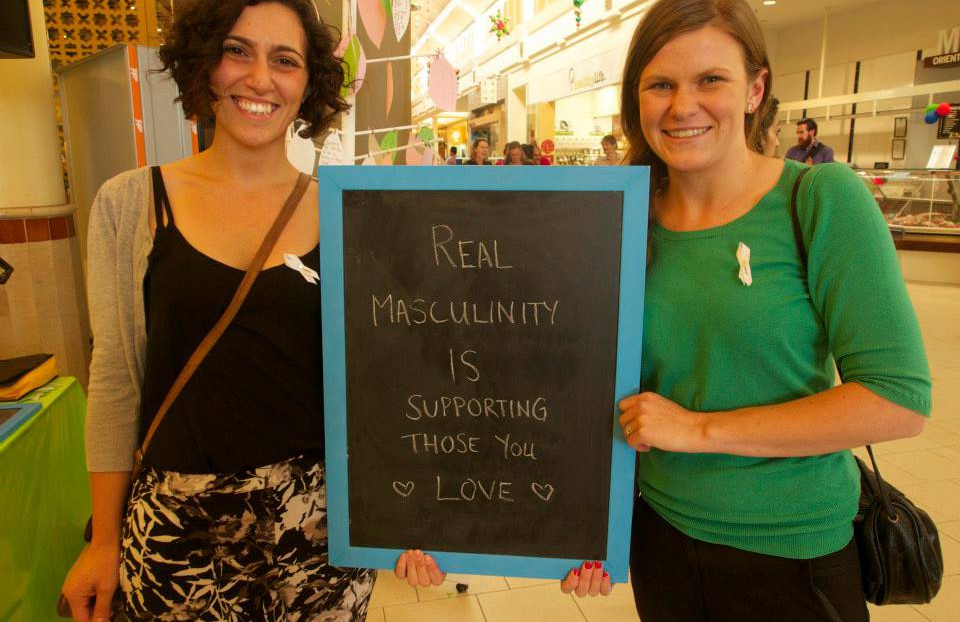 REAL
MASCULINITY
IS
SUPPORTING
THOSE YOU
♡ LOVE ♡
ORIENT